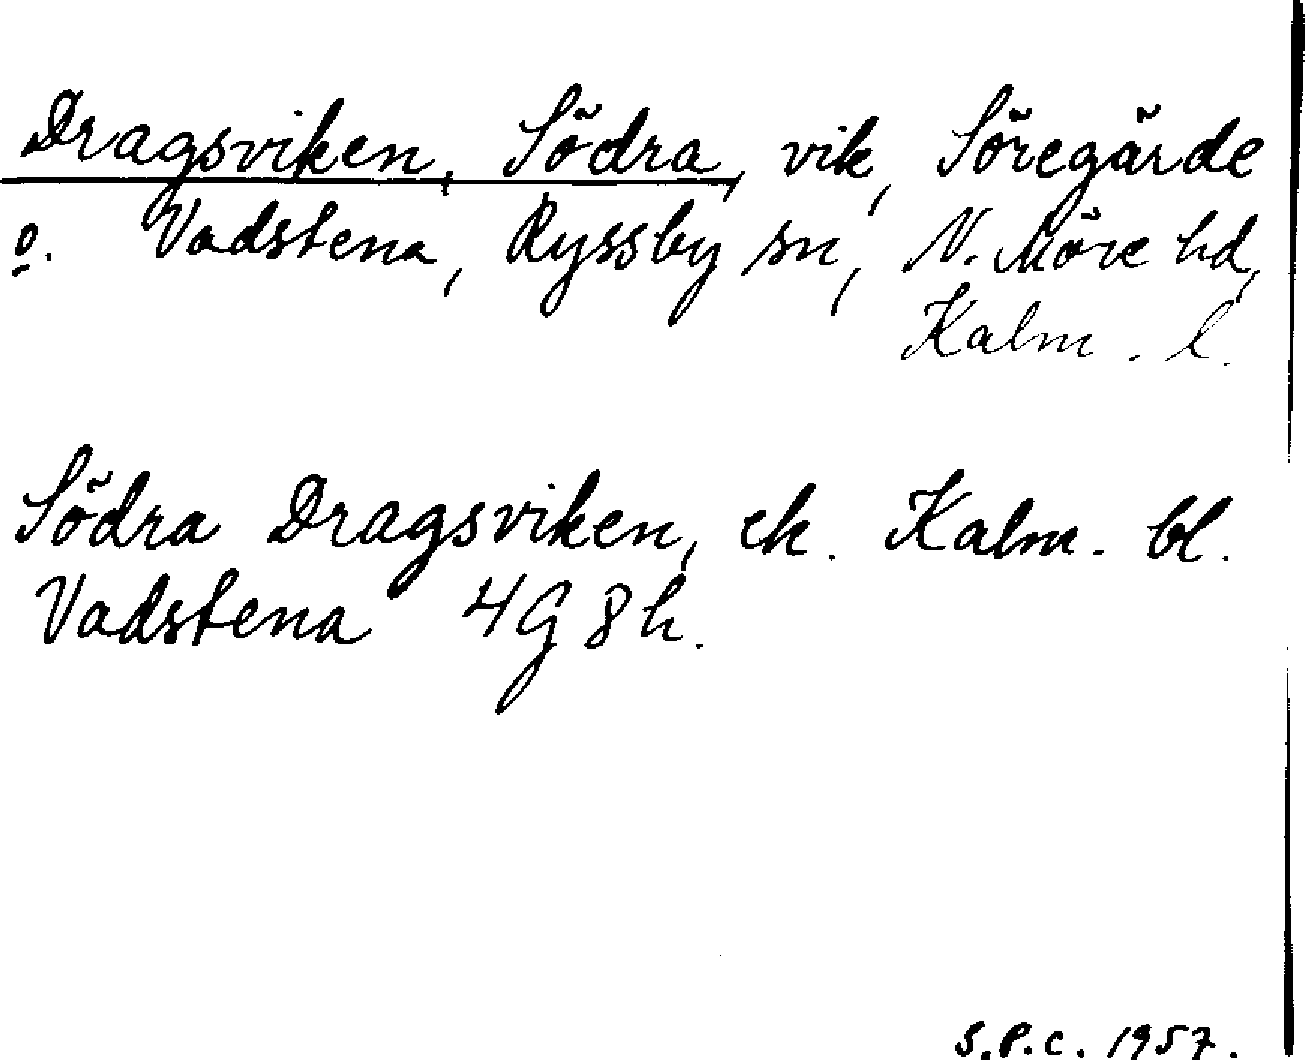 Dragsviken, Södra, vik, Söregärde
o. Vadstena, Ryssby sn, N. Möre hd,
Kalm. l.
Södra Dragsviken, ek. Kalm. bl.
Vadstena 4G 8h.
S.P.C. 1957.